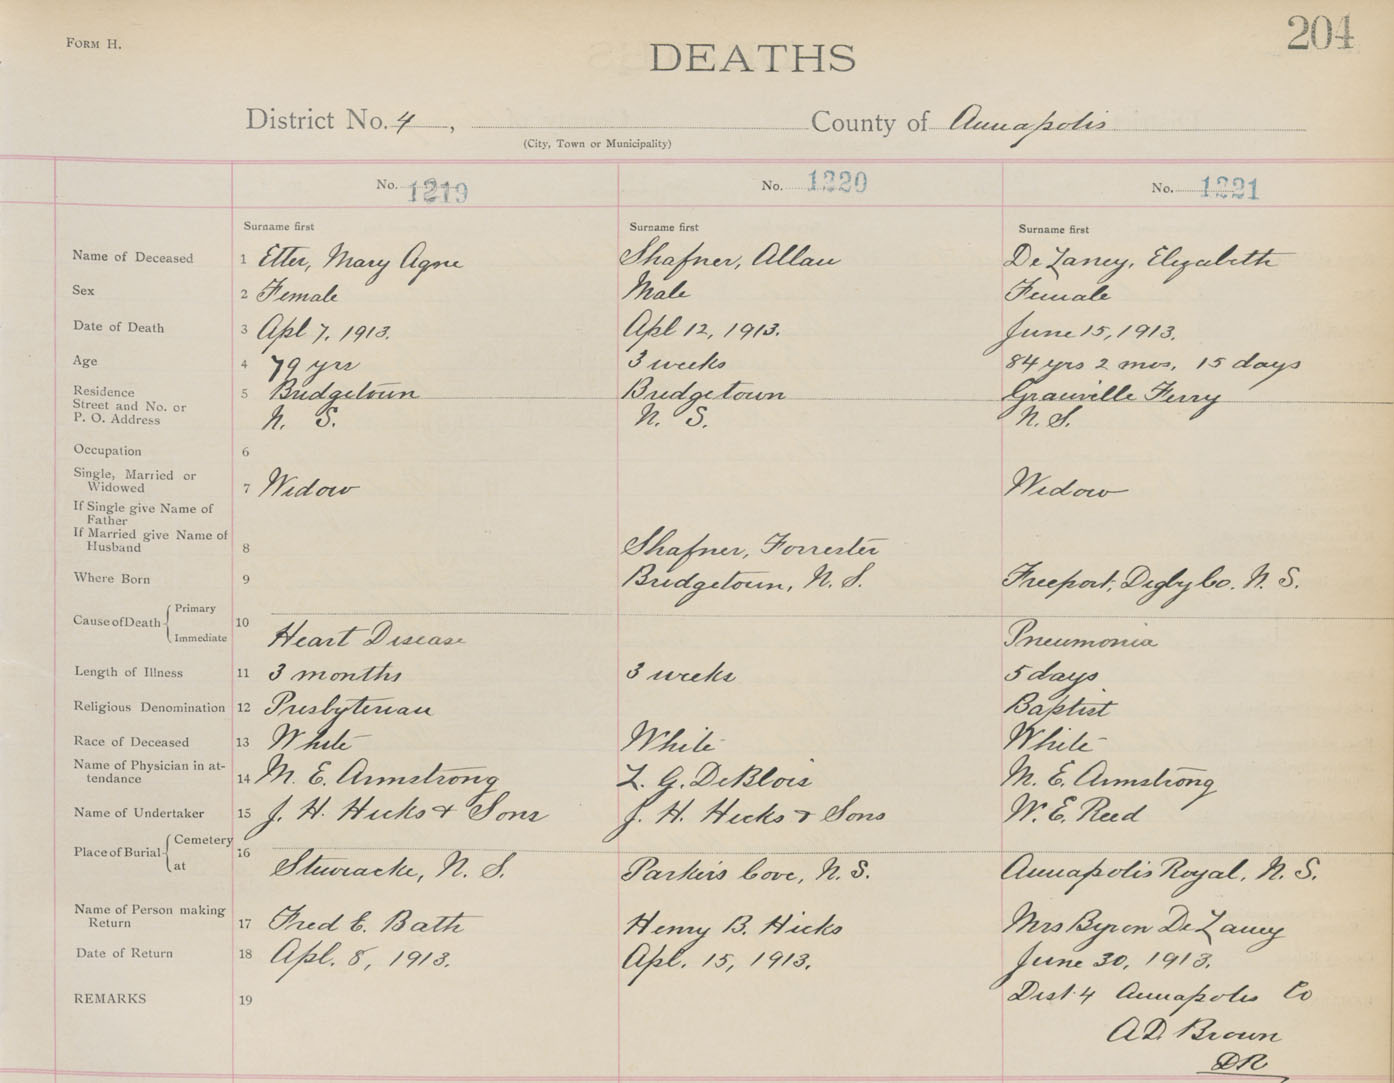 FORM H.
204
DEATHS
District No. 4 , County of Annapolis
(City, Town or Municipality)
No. 1219 No. 1220 No. 1221
Surname first Surname first Surname first
Name of Deceased 1 Etter, Mary Agne Shafner, Allan DeLaney, Elizabeth
Sex 2 Female Male Female
Date of Death 3 Apl 7, 1913. Apl 12, 1913. June 15, 1913.
Age 4 79 yrs 3 weeks 84 yrs 2 mos. 15 days
Residence 5 Bridgetown Bridgetown Granville Ferry
Street and No. or
P. O. Address N. S. N. S. N. S.
Occupation 6
Single, Married or
Widowed 7 Widow Widow
If Single give Name of
Father
If Married give Name of
Husband 8 Shafner, Forrester
Where Born 9 Bridgetown, N. S. Freeport, Digby Co. N. S.
Cause of Death Primary 10
Immediate Heart Disease Pneumonia
Length of Illness 11 3 months 3 weeks 5 days
Religious Denomination 12 Presbyterian Baptist
Race of Deceased 13 White White White
Name of Physician in at-
tendance 14 M. E. Armstrong L. G. DeBlois M. E. Armstrong
Name of Undertaker 15 J. H. Hicks & Sons J. H. Hicks & Sons W. E. Reed
Place of Burial Cemetery 16
at N. S. Parkers Cove, N. S. Annapolis Royal, N. S.
Name of Person making
Return 17 Fred E. Bath Henry B. Hicks Mrs Byron DeLaney
Date of Return 18 Apl. 8, 1913. Apl. 15, 1913. June 30, 1913.
REMARKS 19 Dist. 4 Annapolis Co
A.D. Brown
DR